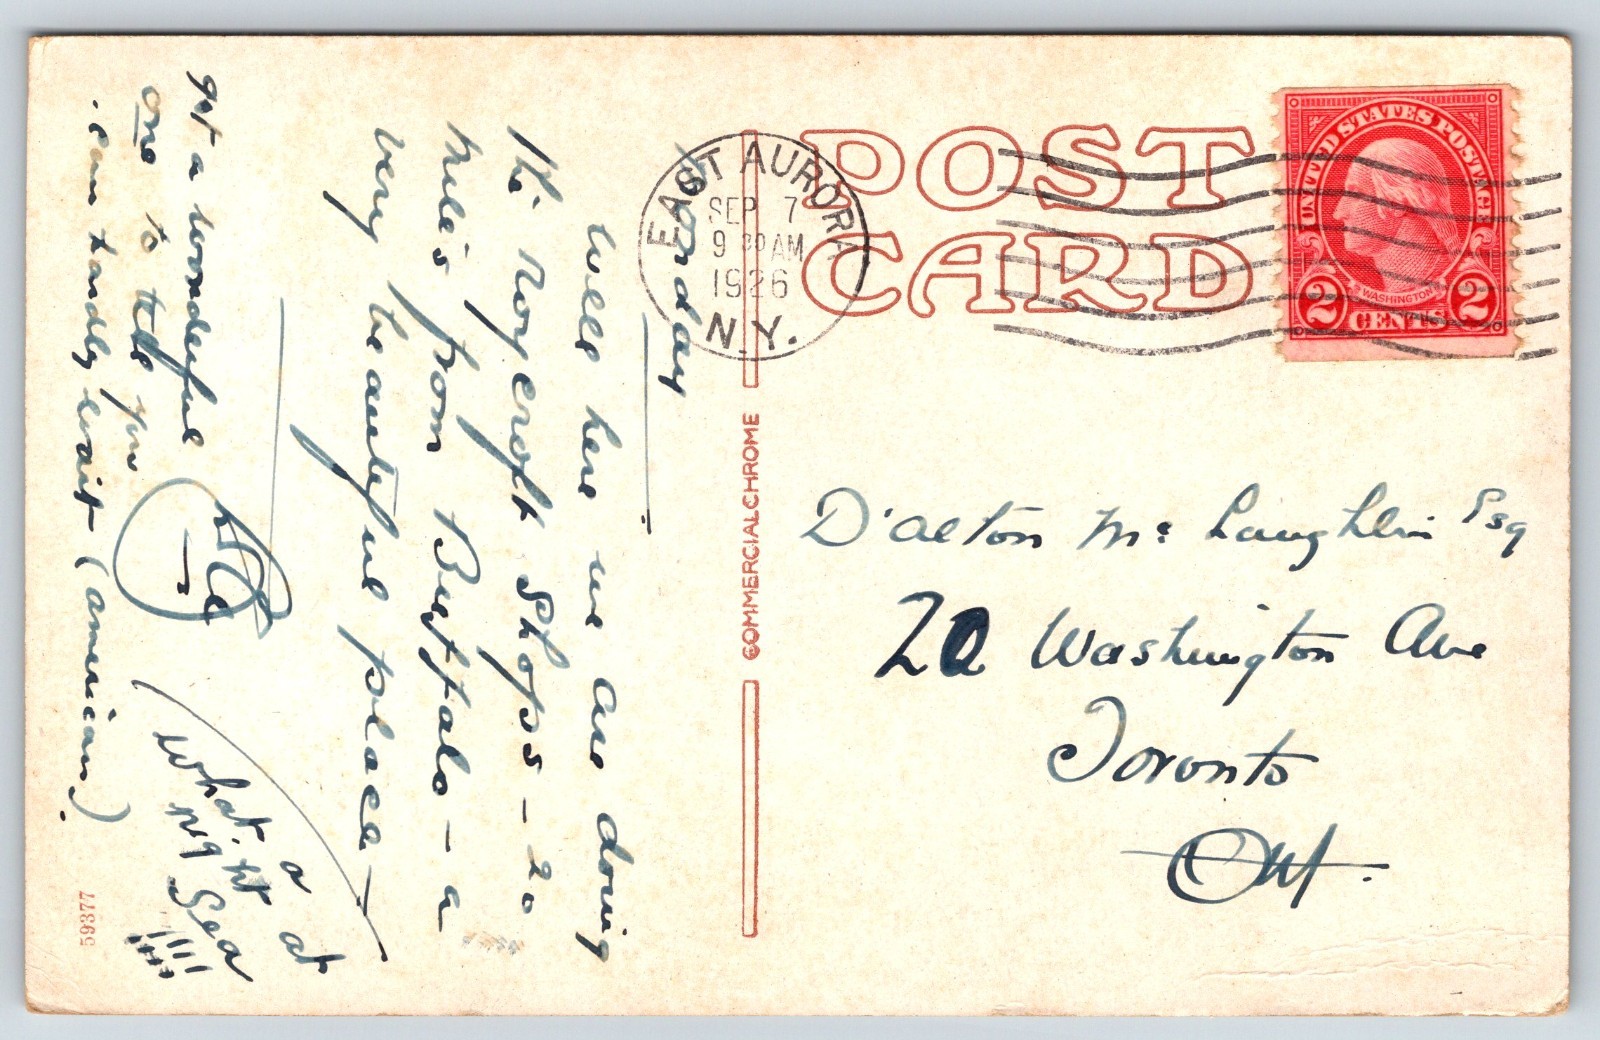 POST
CARD
UNITED STATES POSTAGE
WASHINGTON
2 CENTS 2
EAST AURORA
SEP 7
9 30 AM
1926
N.Y.
Monday
Well here we are doing
the Roycroft Shops – 20
mile's from Buffalo – a
very beautiful place –
got a wonderful
one to tell you
can hardly wait (american).
What a
night at
Sea
!!!!
COMMERCIALCHROME
59377
D'alton Mc Laughlin Esq
20 Washington Ave
Toronto
Ont.